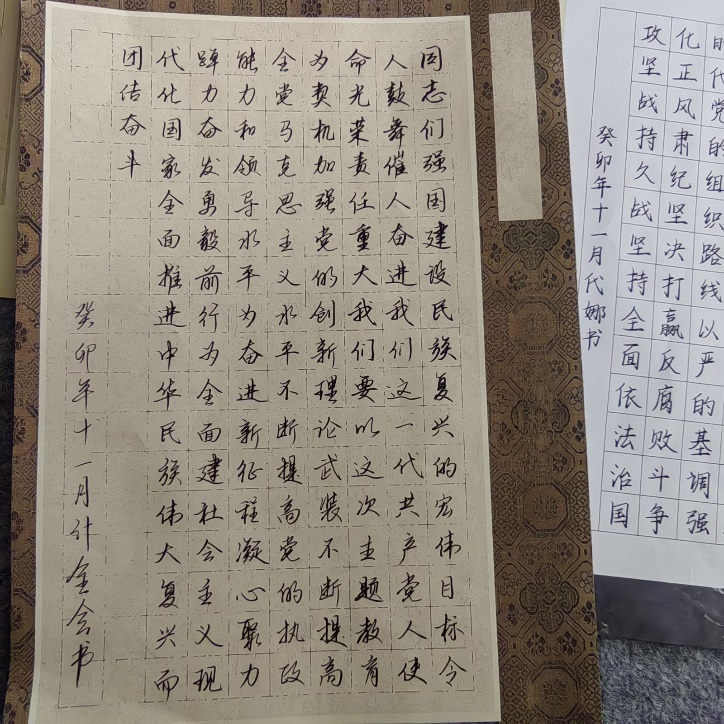 同志们强国建设民族复兴的宏伟目标令
人鼓舞催人奋进我们这一代共产党人使
命光荣责任重大我们要以这次主题教育
为契机加强党的创新理论武装不断提高
全党马克思主义水平不断提高党的执政
能力和领导水平为奋进新征程凝心聚力
踔力奋发勇毅前行为全面建社会主义现
代化国家全面推进中华民族伟大复兴而
团结奋斗
癸卯年十一月什全会书
代党的组织路线以严的基调强
化正风肃纪坚决打赢反腐败斗争
攻坚战持久战坚持全面依法治国
癸卯年十一月代娜书